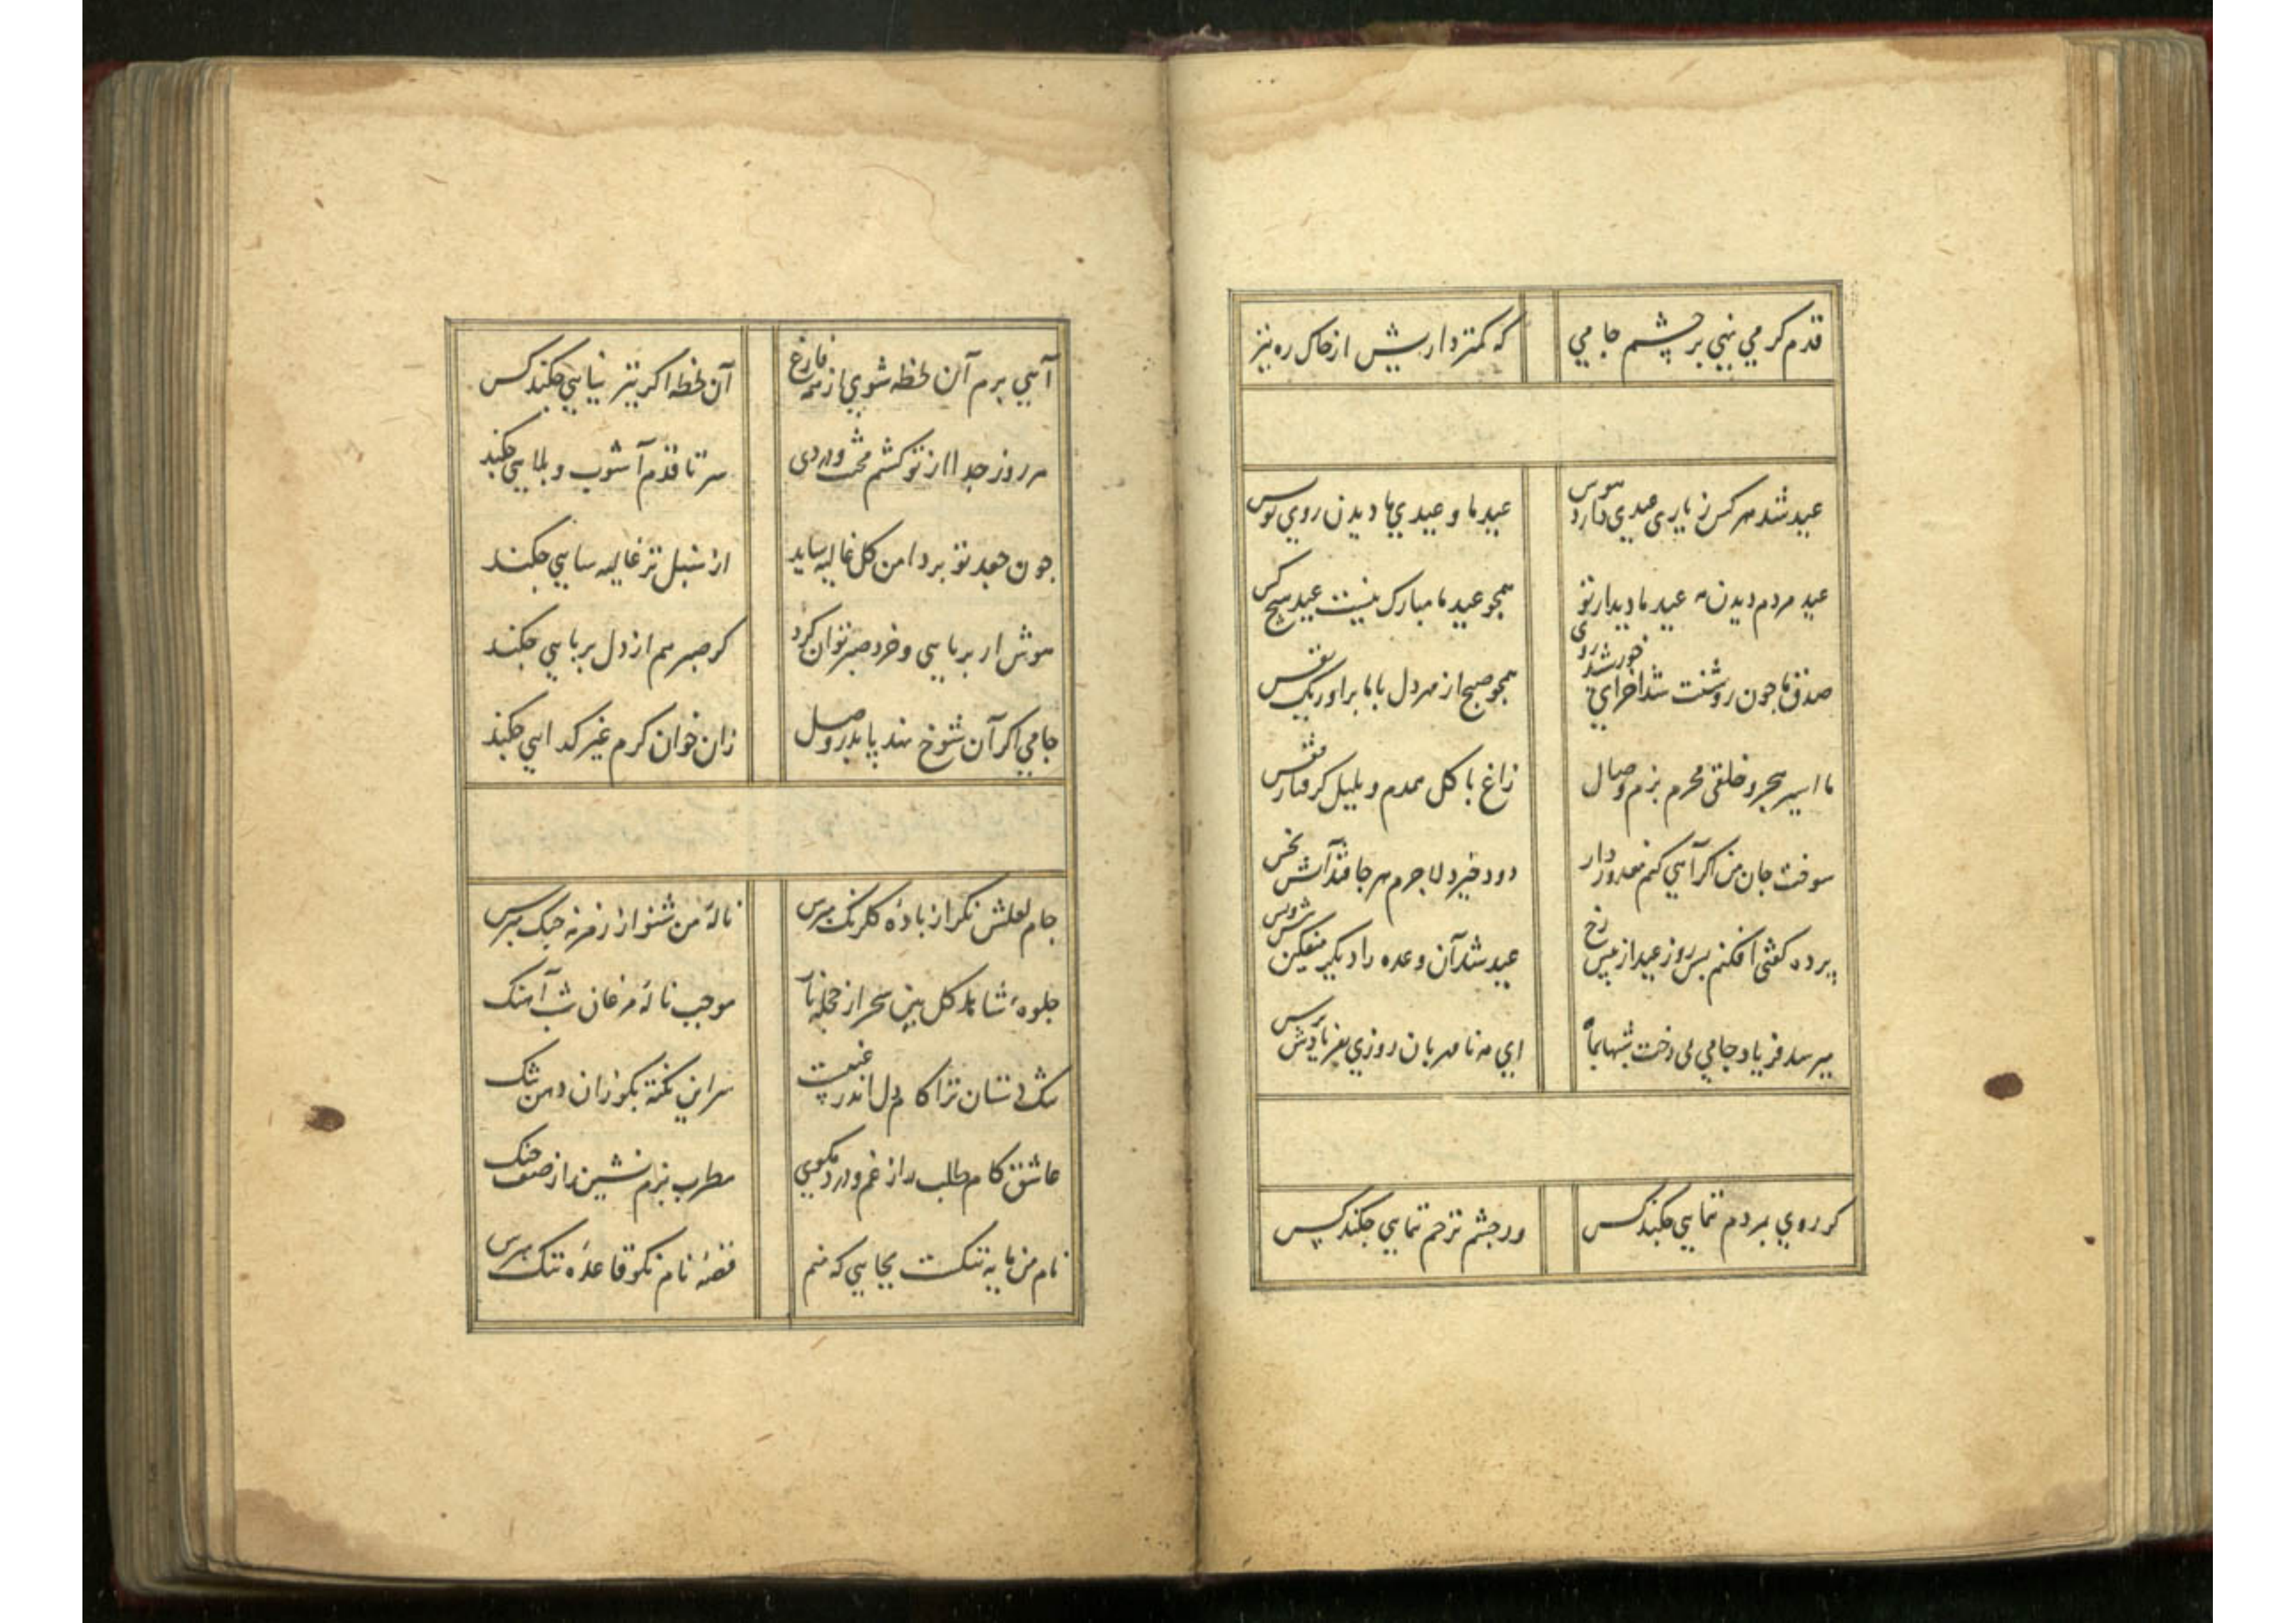 قدم کر می نهی بر چشم جامی
که کمتر داریش از خاک ره نیز
عید شد هر کس ز یاری عیدی دارد هوس
عید ما و عیدی ما دیدن روی تو بس
عید مردم دیدن مه عید ما دیدار تو
همجو عید ما مبارک نیست عید هیج کس
صدق ما جون روشنت شد آخر ای خورشید روی
همجو صبح از مهر دل با ما براور یک نفس
ما اسیر هجر و خلقی محرم بزم وصال
زاغ با کل همدم و بلبل کرفتار قفس
سوخت جان من اکر آهی کنم معذور دار
دود خیزد لاجرم هر جا فتد آتش بخس
پرده کفتی افکنم بس روز عید از بیش رخ
عید شد آن وعده را دیکر میفکن
میرسد فریاد جامی بی رخت شبها بماه
ای مه نا مهربان روزی بفریادش برس
کر روی بمردم ننمایی جکند کس
ور جشم ترحم نمایی جکند کس
آیی برم آن لحظه شوی از همه فارغ
آن لحظه اکر نیز نیایی جکند کس
هر روز جدا از تو کشم محنت و دردی
سر تا قدم آشوب و بلایی جکند
جون جعد تو بر دامن کل غالیه ساید
از سنبل تر غالیه سایی جکند
هوش ار بربایی و خرد صبر توان کرد
کر صبر هم از دل بربایی جکند
جامی اکر آن شوخ نهد پا بدر وصل
زان خوان کرم غیر کدایی جکند
جام لعلش نکر از بادهٔ کلرنک مبرس
نالهٔ من شنو از زمزمه جنک مبرس
جلوهٔ شاهد کل بین سحر از حجله ناز
موجب نالهٔ مرغان شب آهنک
سر این نکته بکو زان دهن تنک
عاشق کام طلب را ز غم و درد مکوی
مطرب بزم نشین را ز صف جنک
نام من مایه ننکست بجایی که منم
قصهٔ نام نکو قاعدهٔ ننک مبرس